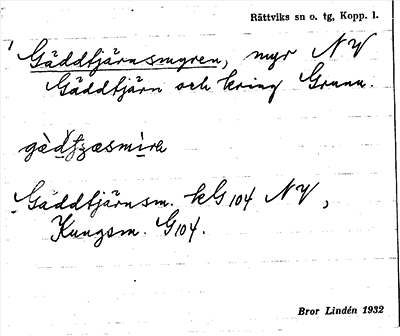 Rättviks sn o. tg, Kopp. l.
Gäddtjärnsmyren, myr NV
Gäddtjärn och kring Grunn.
Gäddtjärnsm. kG104 NV,
Kungsm. G104.
Bror Lindén 1932